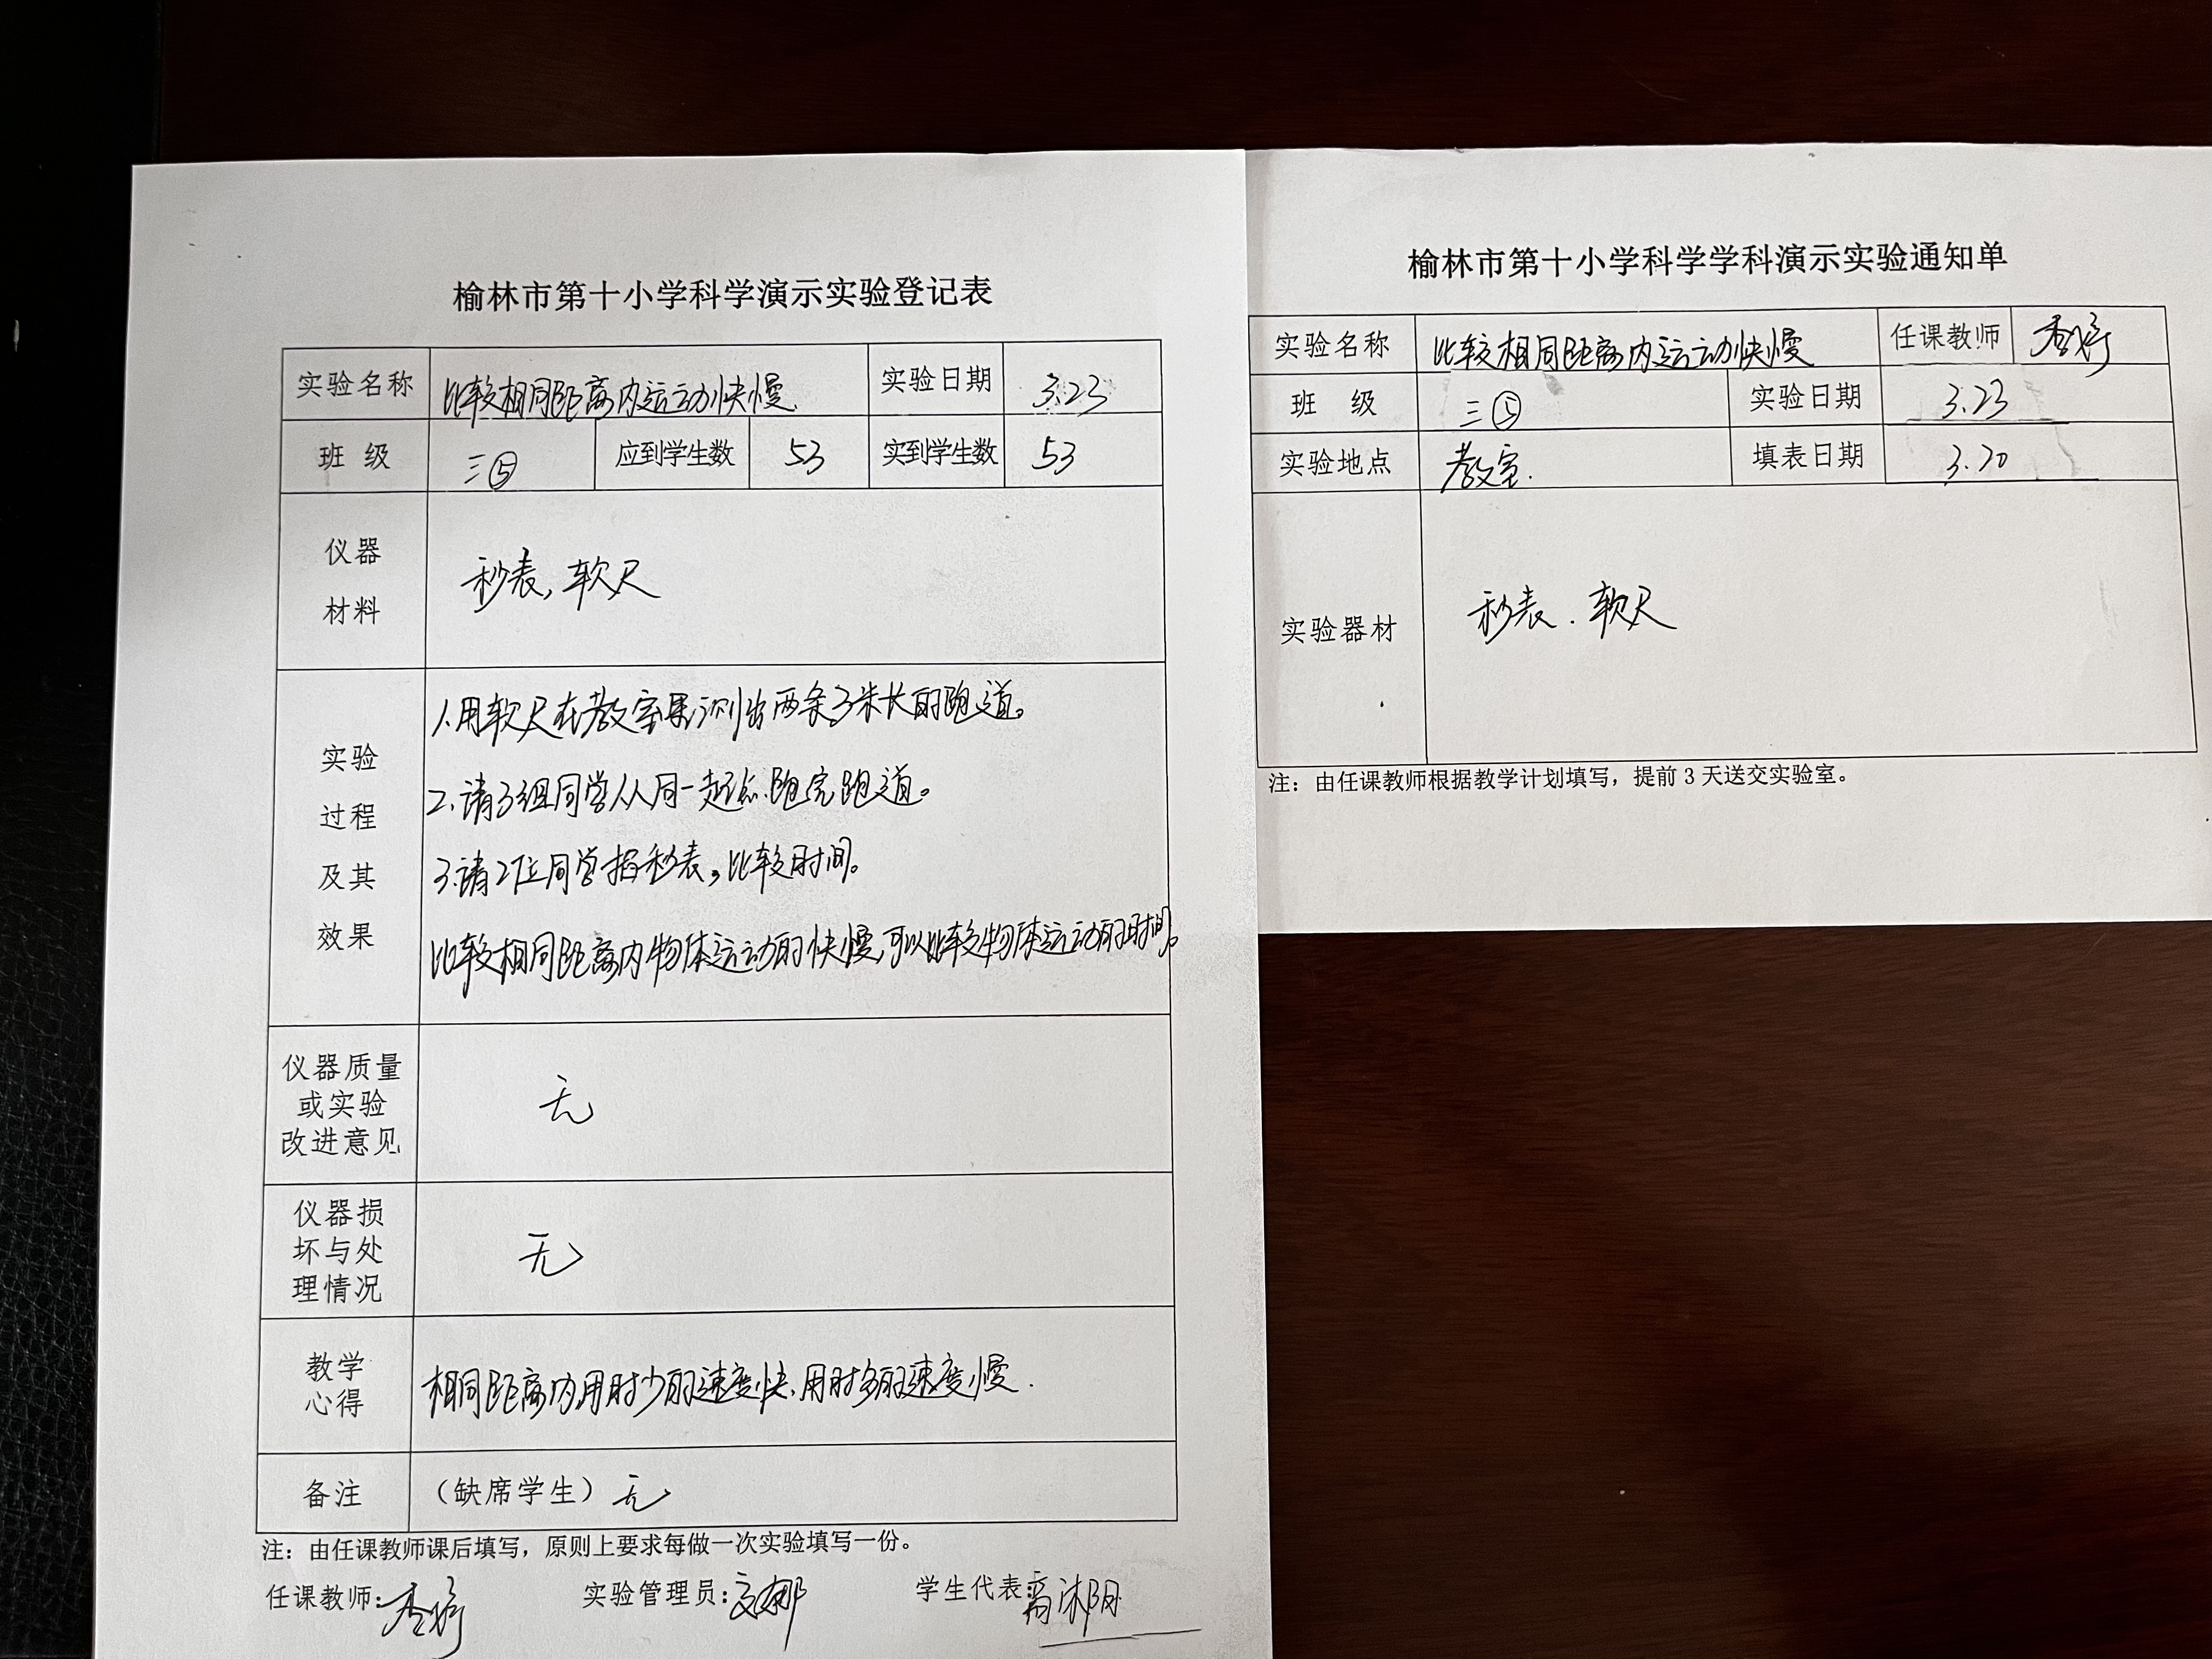 榆林市第十小学科学演示实验登记表
实验名称 比较相同距离内运动快慢. 实验日期 3.23
班 级 三⑤ 应到学生数 53 实到学生数 53
仪器
材料
秒表,软尺
实验
过程
及其
效果
1.用软尺在教室里测出两条3米长的跑道。
2.请3组同学从同一起点跑完跑道。
3.请2位同学掐秒表,比较时间。
比较相同距离内物体运动的快慢,可以比较物体运动的时间。
仪器质量
或实验
改进意见
无
仪器损
坏与处
理情况
无
教学
心得
相同距离内,用时少的速度快,用时多的速度慢.
备注 (缺席学生) 无
注：由任课教师课后填写，原则上要求每做一次实验填写一份。
任课教师: 实验管理员: 学生代表:
榆林市第十小学科学学科演示实验通知单
实验名称 比较相同距离内运动快慢 任课教师
班 级 三⑤ 实验日期 3.23
实验地点 教室. 填表日期 3.20
实验器材 秒表.软尺
注：由任课教师根据教学计划填写，提前 3 天送交实验室。